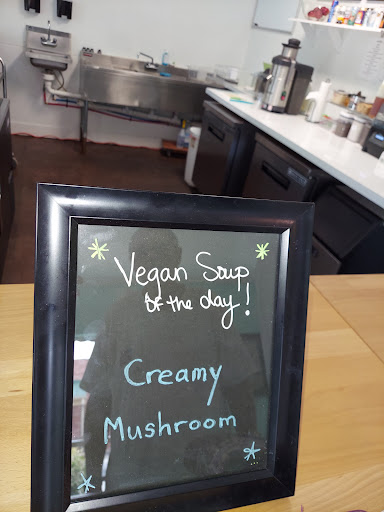 Vegan Soup
of the day!
Creamy
Mushroom